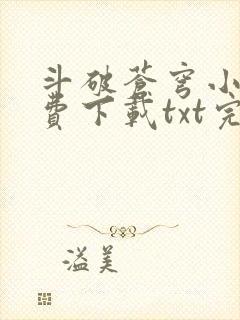 斗破蒼穹小
費下載txt完
溢美